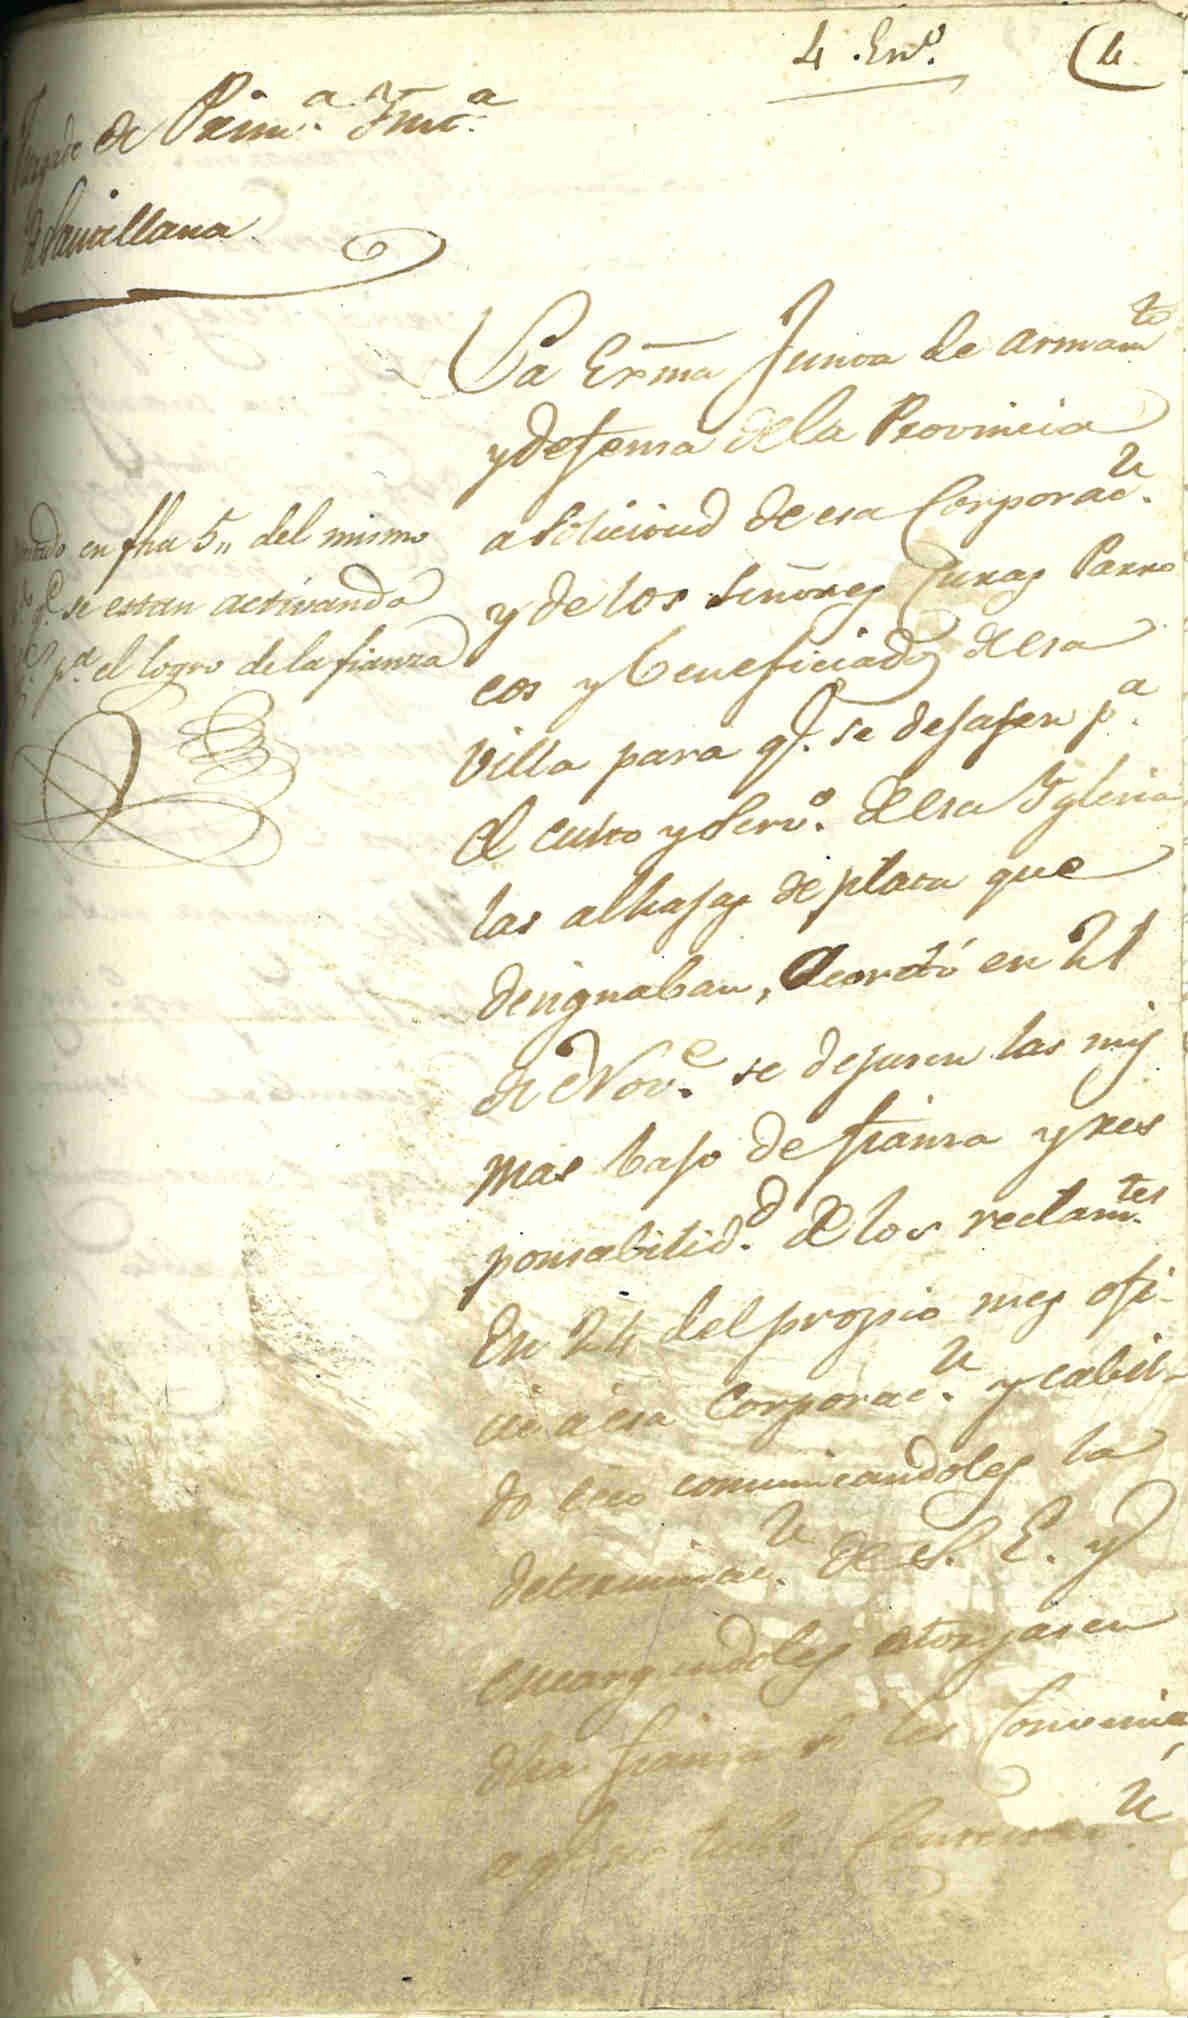 4. En.º (4
Juzgado de Prim.ª Inst.ª
de Santillana.
La Exma Junta de armam.to
y defensa de la Provincia
a solicitud de esa Corporac.n
y de los Señores Curas Parro
cos y beneficiados de esa
Villa para q.e se dejasen p.ª
el culto y serv.º de esa Yglesia
las alhajas de plata que
designaban, acordó en 21
de Nov.e se dejasen las mis
mas bajo de fianza y res
ponsabilid.d de los reclam.tes
En 24 del propio mes ofi-
cié a esa Corporac.n y cabil-
do ecco comunicandoles la
determinac.n de S. E. y
encargandoles otorgasen
dha fianza si les convenia,
a q.e no hubo
en fha 5,, del mismo
q.e se estan activando
p.ª el logro de la fianza